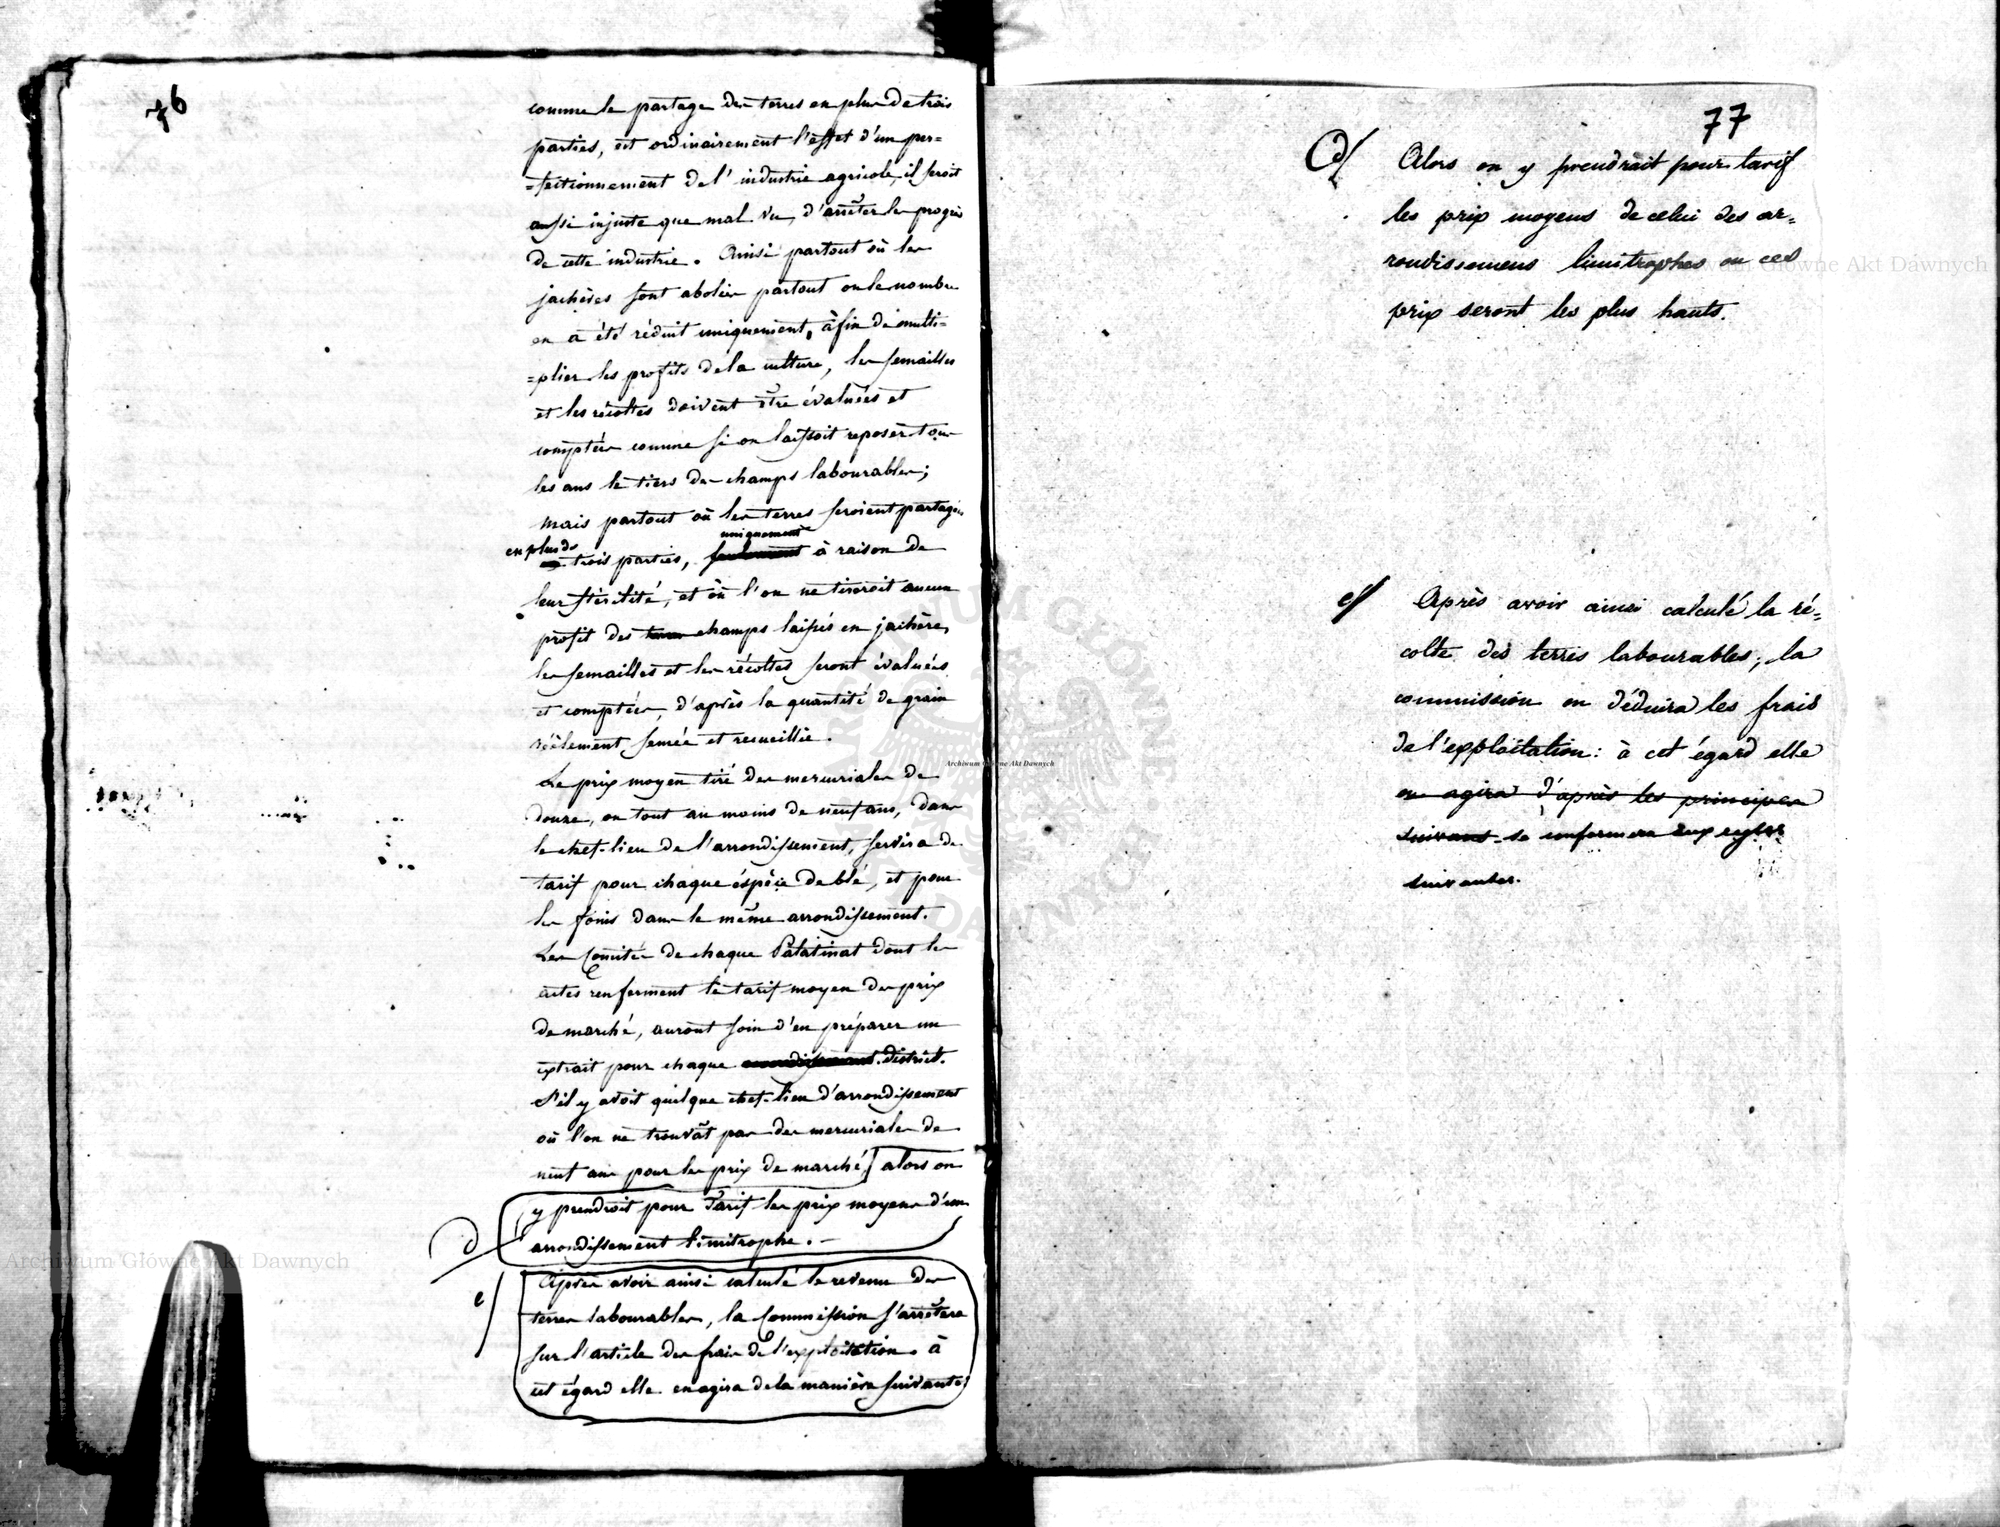 76
comme le partage des terres en plus de trois
parties, est ordinairement l'effet d'un per=
=fectionnement de l'industrie agricole, il seroit
aussi injuste que mal vu, d'arrêter les progrès
de cette industrie. Ainsi partout où les
jachères sont abolies partout ou le nombre
en a été réduit uniquement, àfin de multi=
=plier les profits de la culture, les semailles
et les récoltes doivent être évaluées et
comptées comme si on laissoit reposer tous
les ans le tiers des champs labourables;
mais partout où les terres seroient partagées
en plus de trois parties, seulement uniquement à raison de
leur stérilité, et où l'on ne tireroit aucun
profit des terres champs laissés en jachère,
les semailles et les récoltes seront évaluées
et comptées, d'après la quantité de grain
réelement semée et recueillie.
Le prix moyen tiré des mercuriales de
douze, ou tout au moins de neuf ans, dans
le chef-lieu de l'arrondissement, servira de
tarif pour chaque éspèce de blé, et pour
les foins dans le même arrondissement.
Les Comités de chaque Palatinat dont les
actes renferment le tarif moyen des prix
de marché, auront soin d'en préparer un
extrait pour chaque arrondissement. district.
S'il y avoit quelque chef-lieu d'arrondissement
où l'on ne trouvât pas des mercuriales de
neuf ans pour les prix de marché, alors on
y prendroit pour Tarif les prix moyens d'un
arrondissement limitrophe. —
d
e/ Après avoir ainsi calculé le revenu des
terres labourables, la Commission s'arrêtera
sur l'article des frais de l'exploitation. à
cet égard elle en agira de la manière suivante:
77
d/ Alors on y prendrait pour tarif
les prix moyens de celui des ar=
rondissemens limitrophes ou ces
prix seront les plus hauts.
e/ Après avoir ainsi calculé la ré=
colte des terres labourables, la
commission en déduira les frais
de l'exploitation: à cet égard elle
en agira d'après les principes
suivans se conformera aux regles
suivantes.
Archiwum Główne Akt Dawnych
Archiwum Główne Akt Dawnych
Archiwum Główne Akt Dawnych
ARCHIWUM GŁÓWNE AKT DAWNYCH